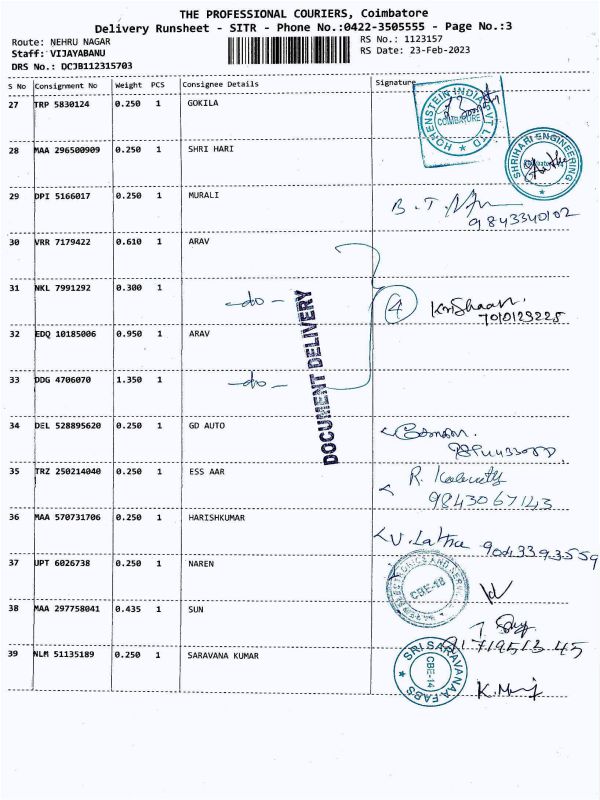 THE PROFESSIONAL COURIERS, Coimbatore
Delivery Runsheet - SITR - Phone No.:0422-3505555 - Page No.:3
Route: NEHRU NAGAR
Staff: VIJAYABANU
DRS No.: DCJB112315703
RS No.: 1123157
RS Date: 23-Feb-2023
S No Consignment No Weight PCS Consignee Details Signature
27 TRP 5830124 0.250 1 GOKILA
HOHENSTEIN INDIA PVT LTD
COIMBATORE
28 MAA 296500909 0.250 1 SHRI HARI
SHRIHARI ENGINEERING
29 DPI 5166017 0.250 1 MURALI
B. T.
9843340102
30 VRR 7179422 0.610 1 ARAV
31 NKL 7991292 0.300 1 -do-
4
7010129225
32 EDQ 10185006 0.950 1 ARAV
33 DDG 4706070 1.350 1 -do-
DOCUMENT DELIVERY
34 DEL 528895620 0.250 1 GD AUTO
35 TRZ 250214040 0.250 1 ESS AAR
R.
9843067143
36 MAA 570731706 0.250 1 HARISHKUMAR
V. Latha 9043393559
37 UPT 6026738 0.250 1 NAREN
ELECTRONICS AND
CBE-18
38 MAA 297758041 0.435 1 SUN
39 NLM 51135189 0.250 1 SARAVANA KUMAR
SRI SARAVANAA FABS
CBE-14